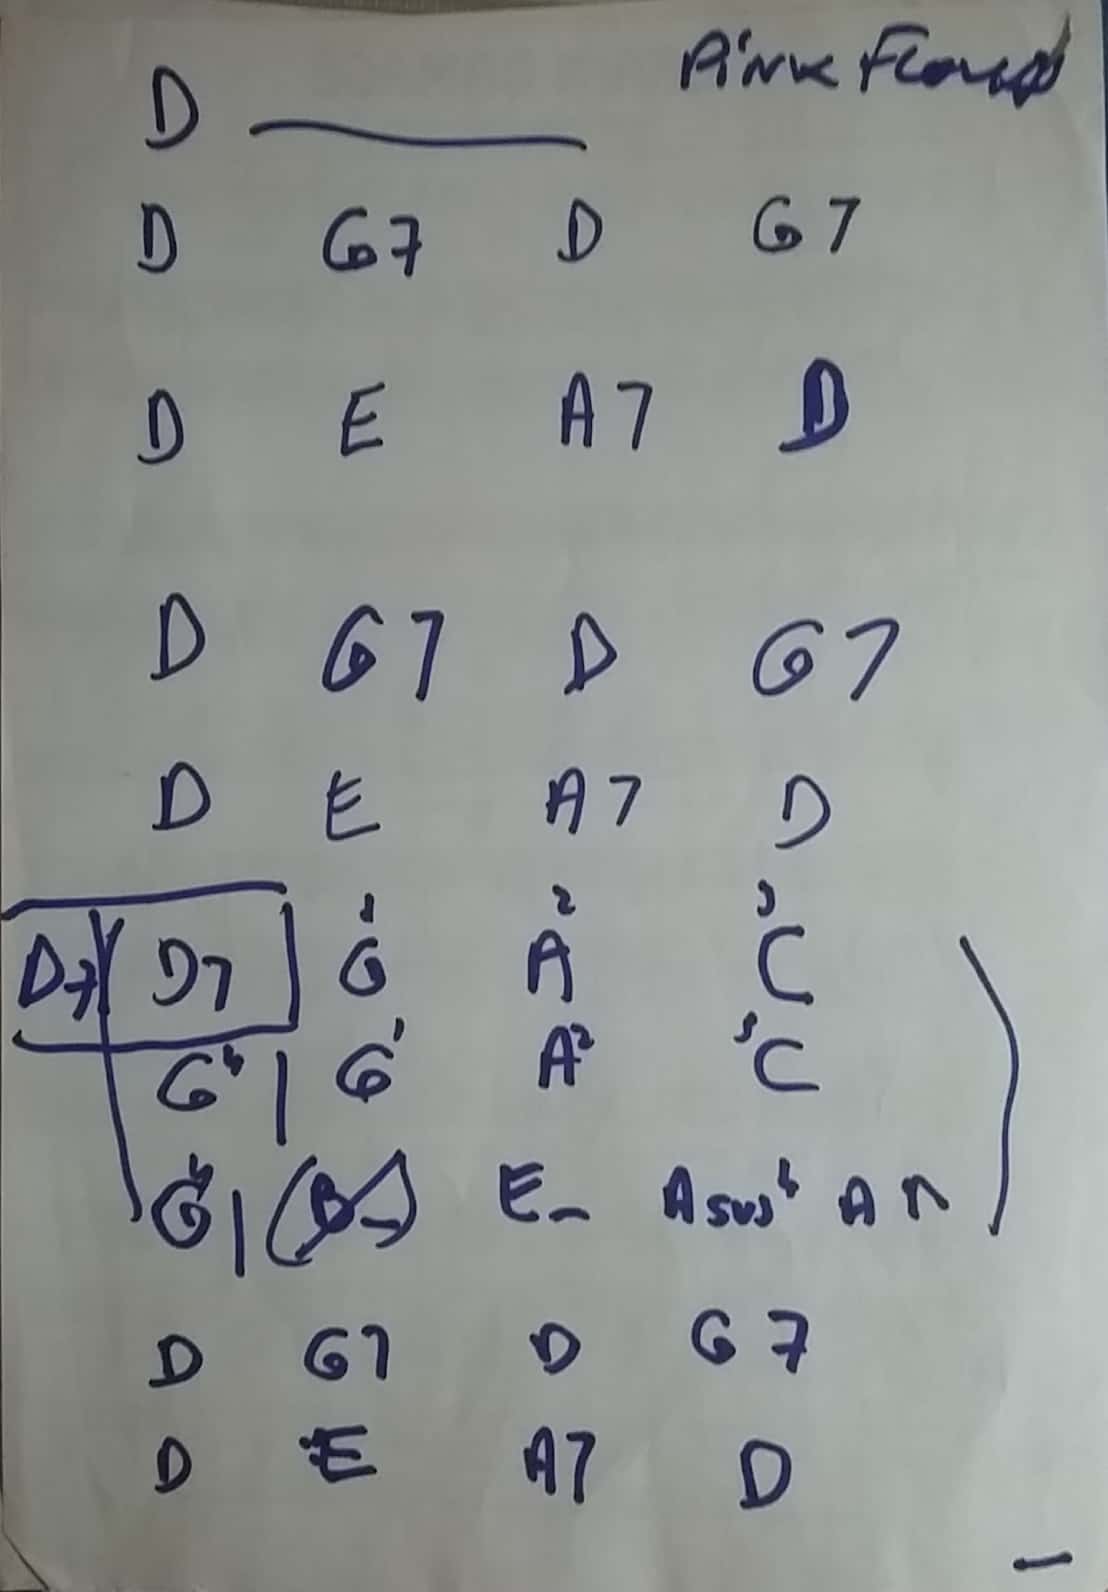 Pink Floyd
D
D G7 D G7
D E A7 D
D G7 D G7
D E A7 D
D7 D7 1G 2A 3C
G4 | G1 A2 3C
G4 | (B-) E- Asus4 A
D G7 D G7
D E A7 D